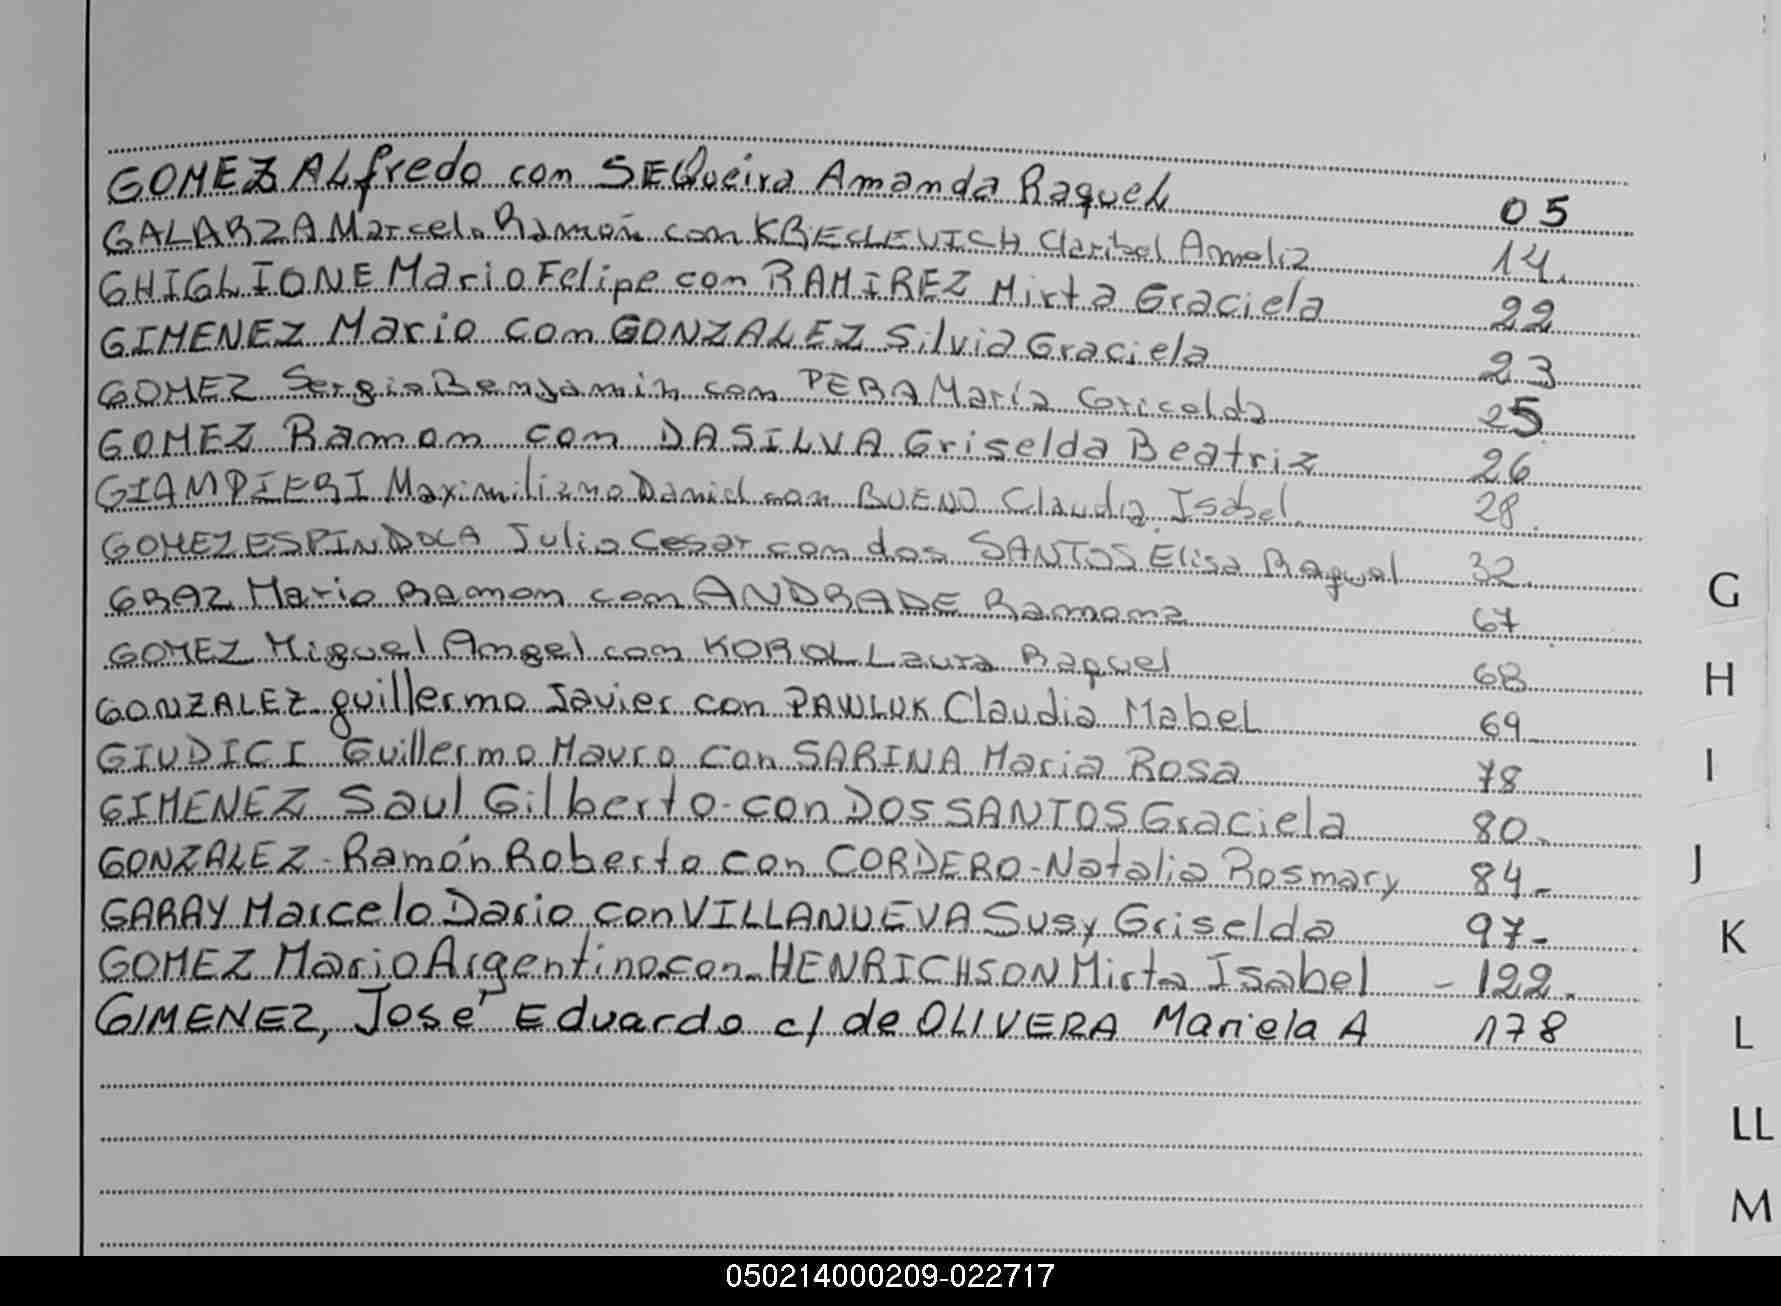 GOMEZ ALfredo con SEQueira Amanda Raquel 05
GALARZA Marcelo Ramón con KRECLEVICH Claribel Amelia 14.
GHIGLIONE Mario Felipe con RAMIREZ Mirta Graciela 22
GIMENEZ Mario con GONZALEZ Silvia Graciela 23
GOMEZ Sergio Benjamin con PERA María Gricelda 25
GOMEZ Ramon con DASILVA Griselda Beatriz 26
GIAMPIERI Maximiliano Daniel con BUENO Claudia Isabel 28.
GOMEZ ESPINDOLA Julio Cesar con dos SANTOS Elisa Raquel 32.
GRAZ Mario Ramon con ANDRADE Ramona 67
GOMEZ Miguel Angel con KOROL Laura Raquel 68
GONZALEZ guillermo Javier con PAWLUK Claudia Mabel 69
GIUDICI Guillermo Mauro con SARINA Maria Rosa 78
GIMENEZ Saul Gilberto con DOS SANTOS Graciela 80
GONZALEZ Ramón Roberto con CORDERO Natalia Rosmary 84-
GARAY Marcelo Dario con VILLANUEVA Susy Griselda 97-
GOMEZ Mario Argentino con HENRICHSON Mirta Isabel - 122.
GIMENEZ, José Eduardo c/ de OLIVERA Mariela A 178
G
H
I
J
K
L
LL
M
050214000209-022717